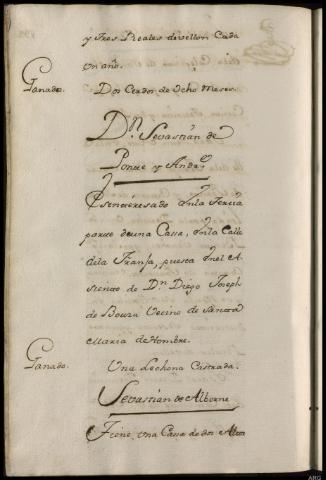 y tres Reales de vellon Cada
un año.
Ganado. Dos Cerdos de Ocho Meses
Dn. Sevastián de
Ponte y Andre.
Es interesado en la tercia
parte de una Casa, en la Calle
dela Franja, puesta en el A
siento de Dn Diego Joseph
de Bouza Vecino de Santa
Maria de Hombre.
Ganado. Una Lechona Castrada.
Sevastián de Alberne
Tiene una Casa de dos Altos
ARG